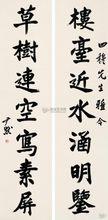 樓臺近水涵明鑑
先生雅令
草樹連空寫素屏
尹默